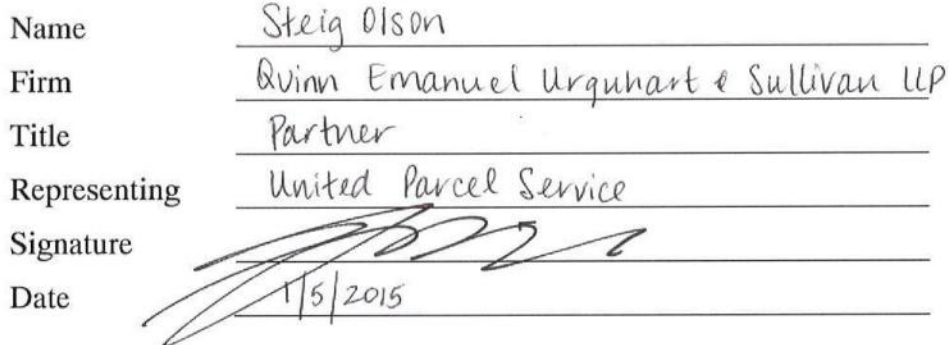 Name Steig Olson
Firm Quinn Emanuel Urquhart & Sullivan LLP
Title Partner
Representing United Parcel Service
Signature
Date 1/5/2015